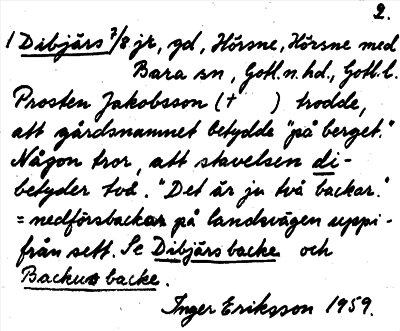 2.
1 Dibjärs 7/8 jr, gd, Hörsne, Hörsne med
Bara sn, Gotl. n. hd., Gotl. l.
Prosten Jakobsson († ) trodde,
att gårdsnamnet betydde "på berget."
Någon tror, att stavelsen di-
betyder två. "Det är ju två backar."
= nedförsbackar på landsvägen uppi-
från sett. Se Dibjärs backe och
Backus backe.
Inger Eriksson 1959.